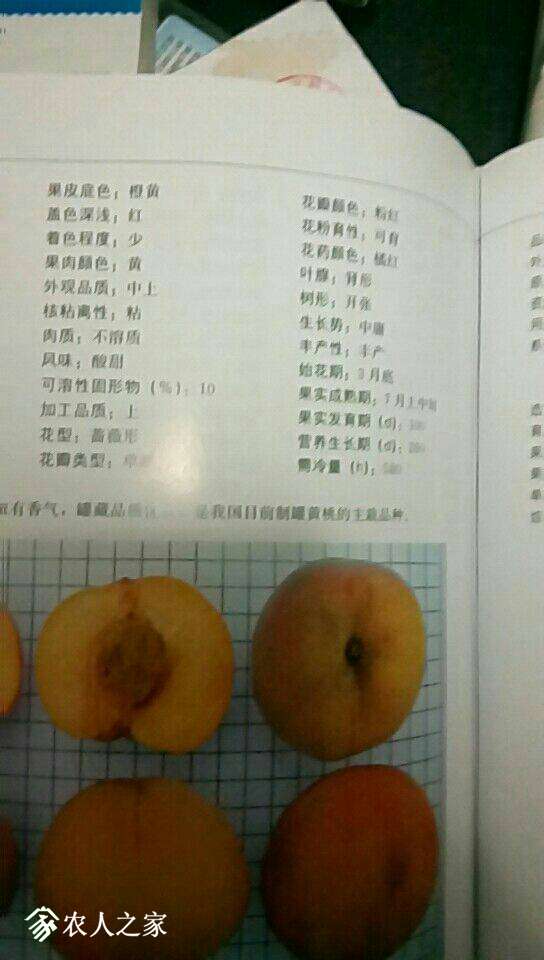 果皮底色；橙黄
盖色深浅；红
着色程度；少
果肉颜色；黄
外观品质；中上
核粘离性；粘
肉质；不溶质
风味；酸甜
可溶性固形物（%）；10
加工品质；上
花型；蔷薇形
花瓣类型；
花瓣颜色；粉红
花粉育性；可育
花药颜色；橘红
叶腺；肾形
树形；开张
生长势；中庸
丰产性；丰产
始花期；3月底
果实成熟期；7月上中旬
果实发育期（d）；
营养生长期（d）；
需冷量（h）；
有香气，罐藏品质 是我国目前制罐黄桃的主栽品种.
农人之家